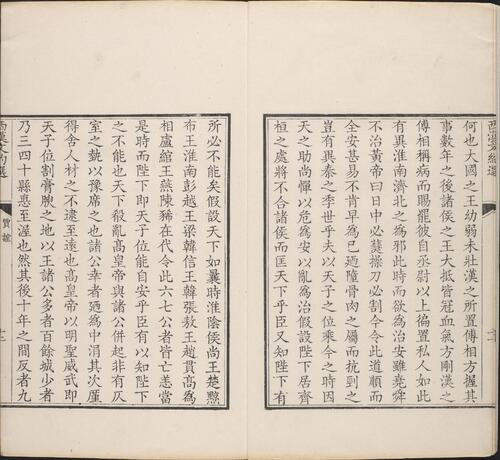 西漢文約選
何也大國之王幼弱未壯漢之所置傅相方握其
事數年之後諸侯之王大抵皆冠血氣方剛漢之
傅相稱病而賜罷彼自丞尉以上徧置私人如此
有異淮南濟北之為邪此時而欲為治安雖堯舜
不治黃帝曰日中必㷅操刀必割今令此道順而
全安甚易不肯早為已迺墮骨肉之屬而抗剄之
豈有異秦之季世乎夫以天子之位乘今之時因
天之助尚憚以危為安以亂為治假設陛下居齊
桓之處將不合諸侯而匡天下乎臣又知陛下有
所必不能矣假設天下如曩時淮陰侯尚王楚黥
布王淮南彭越王梁韓信王韓張敖王趙貫高為
相盧綰王燕陳豨在代令此六七公者皆亡恙當
是時而陛下即天子位能自安乎臣有以知陛下
之不能也天下殽亂高皇帝與諸公併起非有仄
室之埶以豫席之也諸公幸者迺為中涓其次厪
得舍人材之不逮至遠也高皇帝以明聖威武即
天子位割膏腴之地以王諸公多者百餘城少者
乃三四十縣悳至渥也然其後十年之間反者九
西漢文約選 賈誼